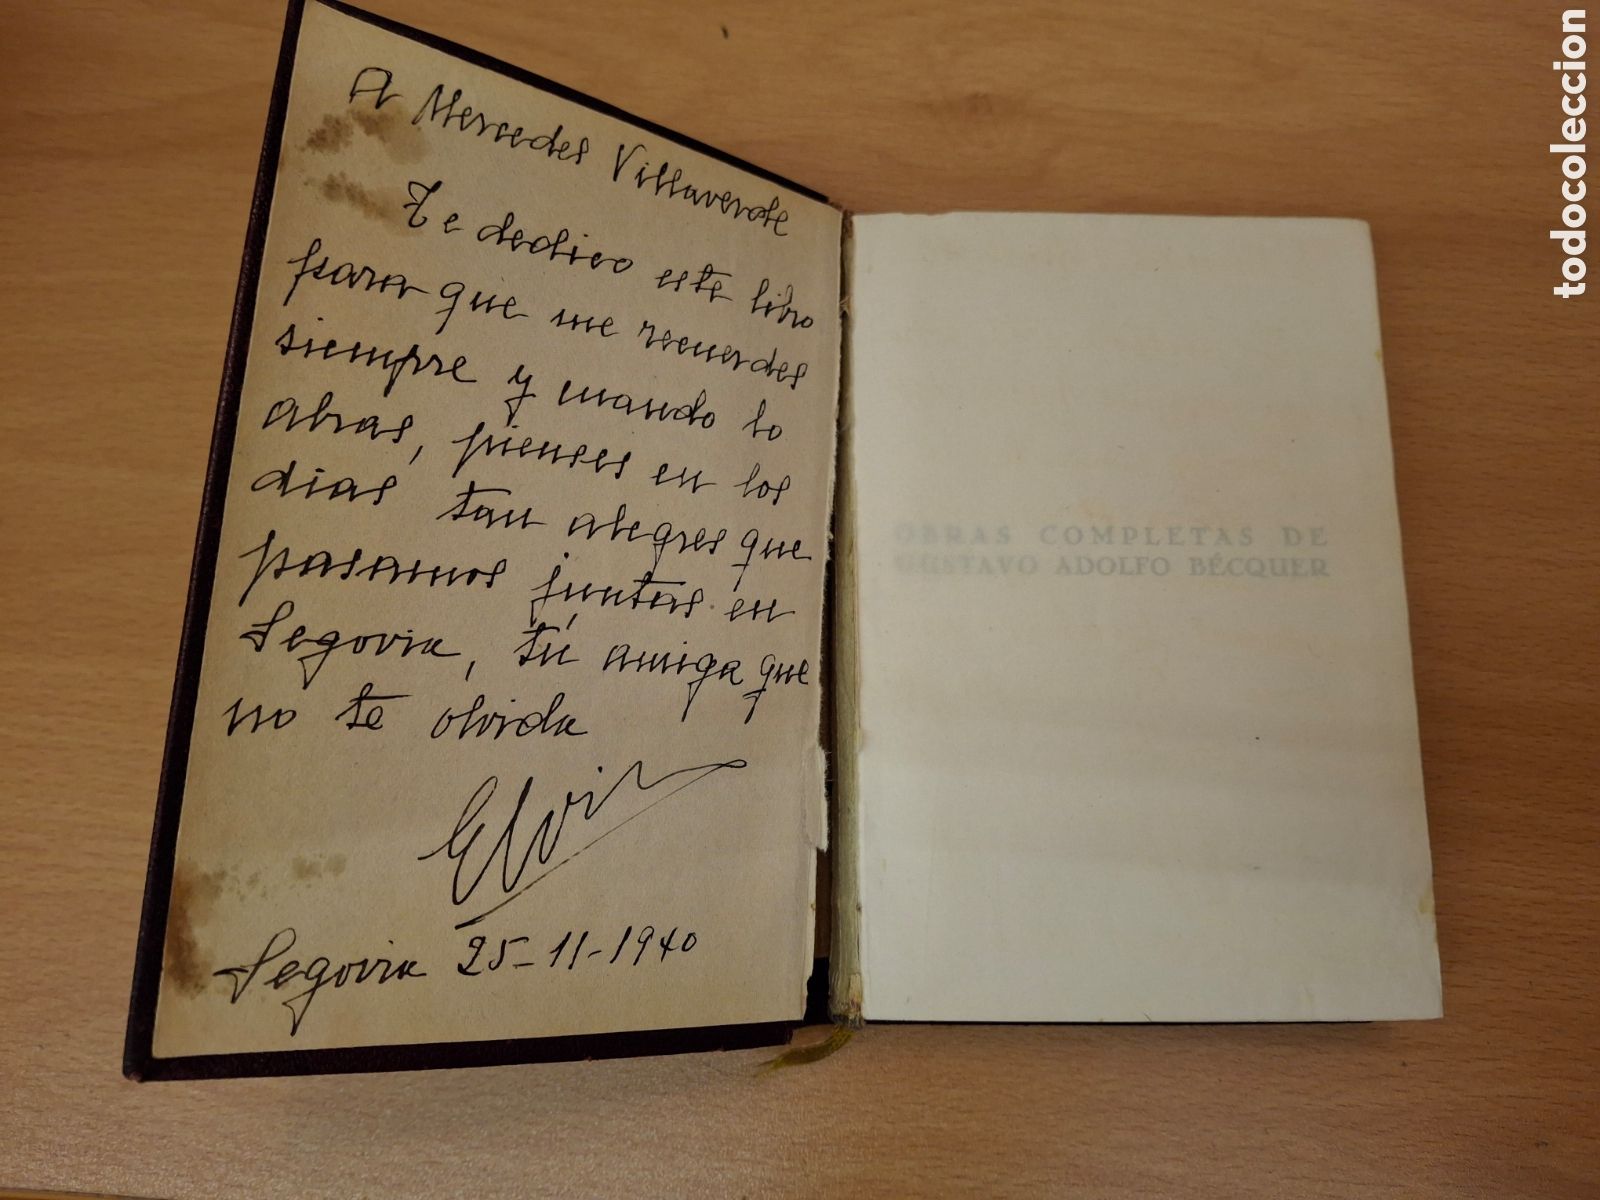 A Mercedes Villaverde
Te dedico este libro
para que me recuerdes
siempre y cuando lo
abras, pienses en los
dias tan alegres que
pasamos juntas en
Segovia, tú amiga que
no te olvida
Elvir
Segovia 25-11-1940
OBRAS COMPLETAS DE
GUSTAVO ADOLFO BÉCQUER
todocoleccion